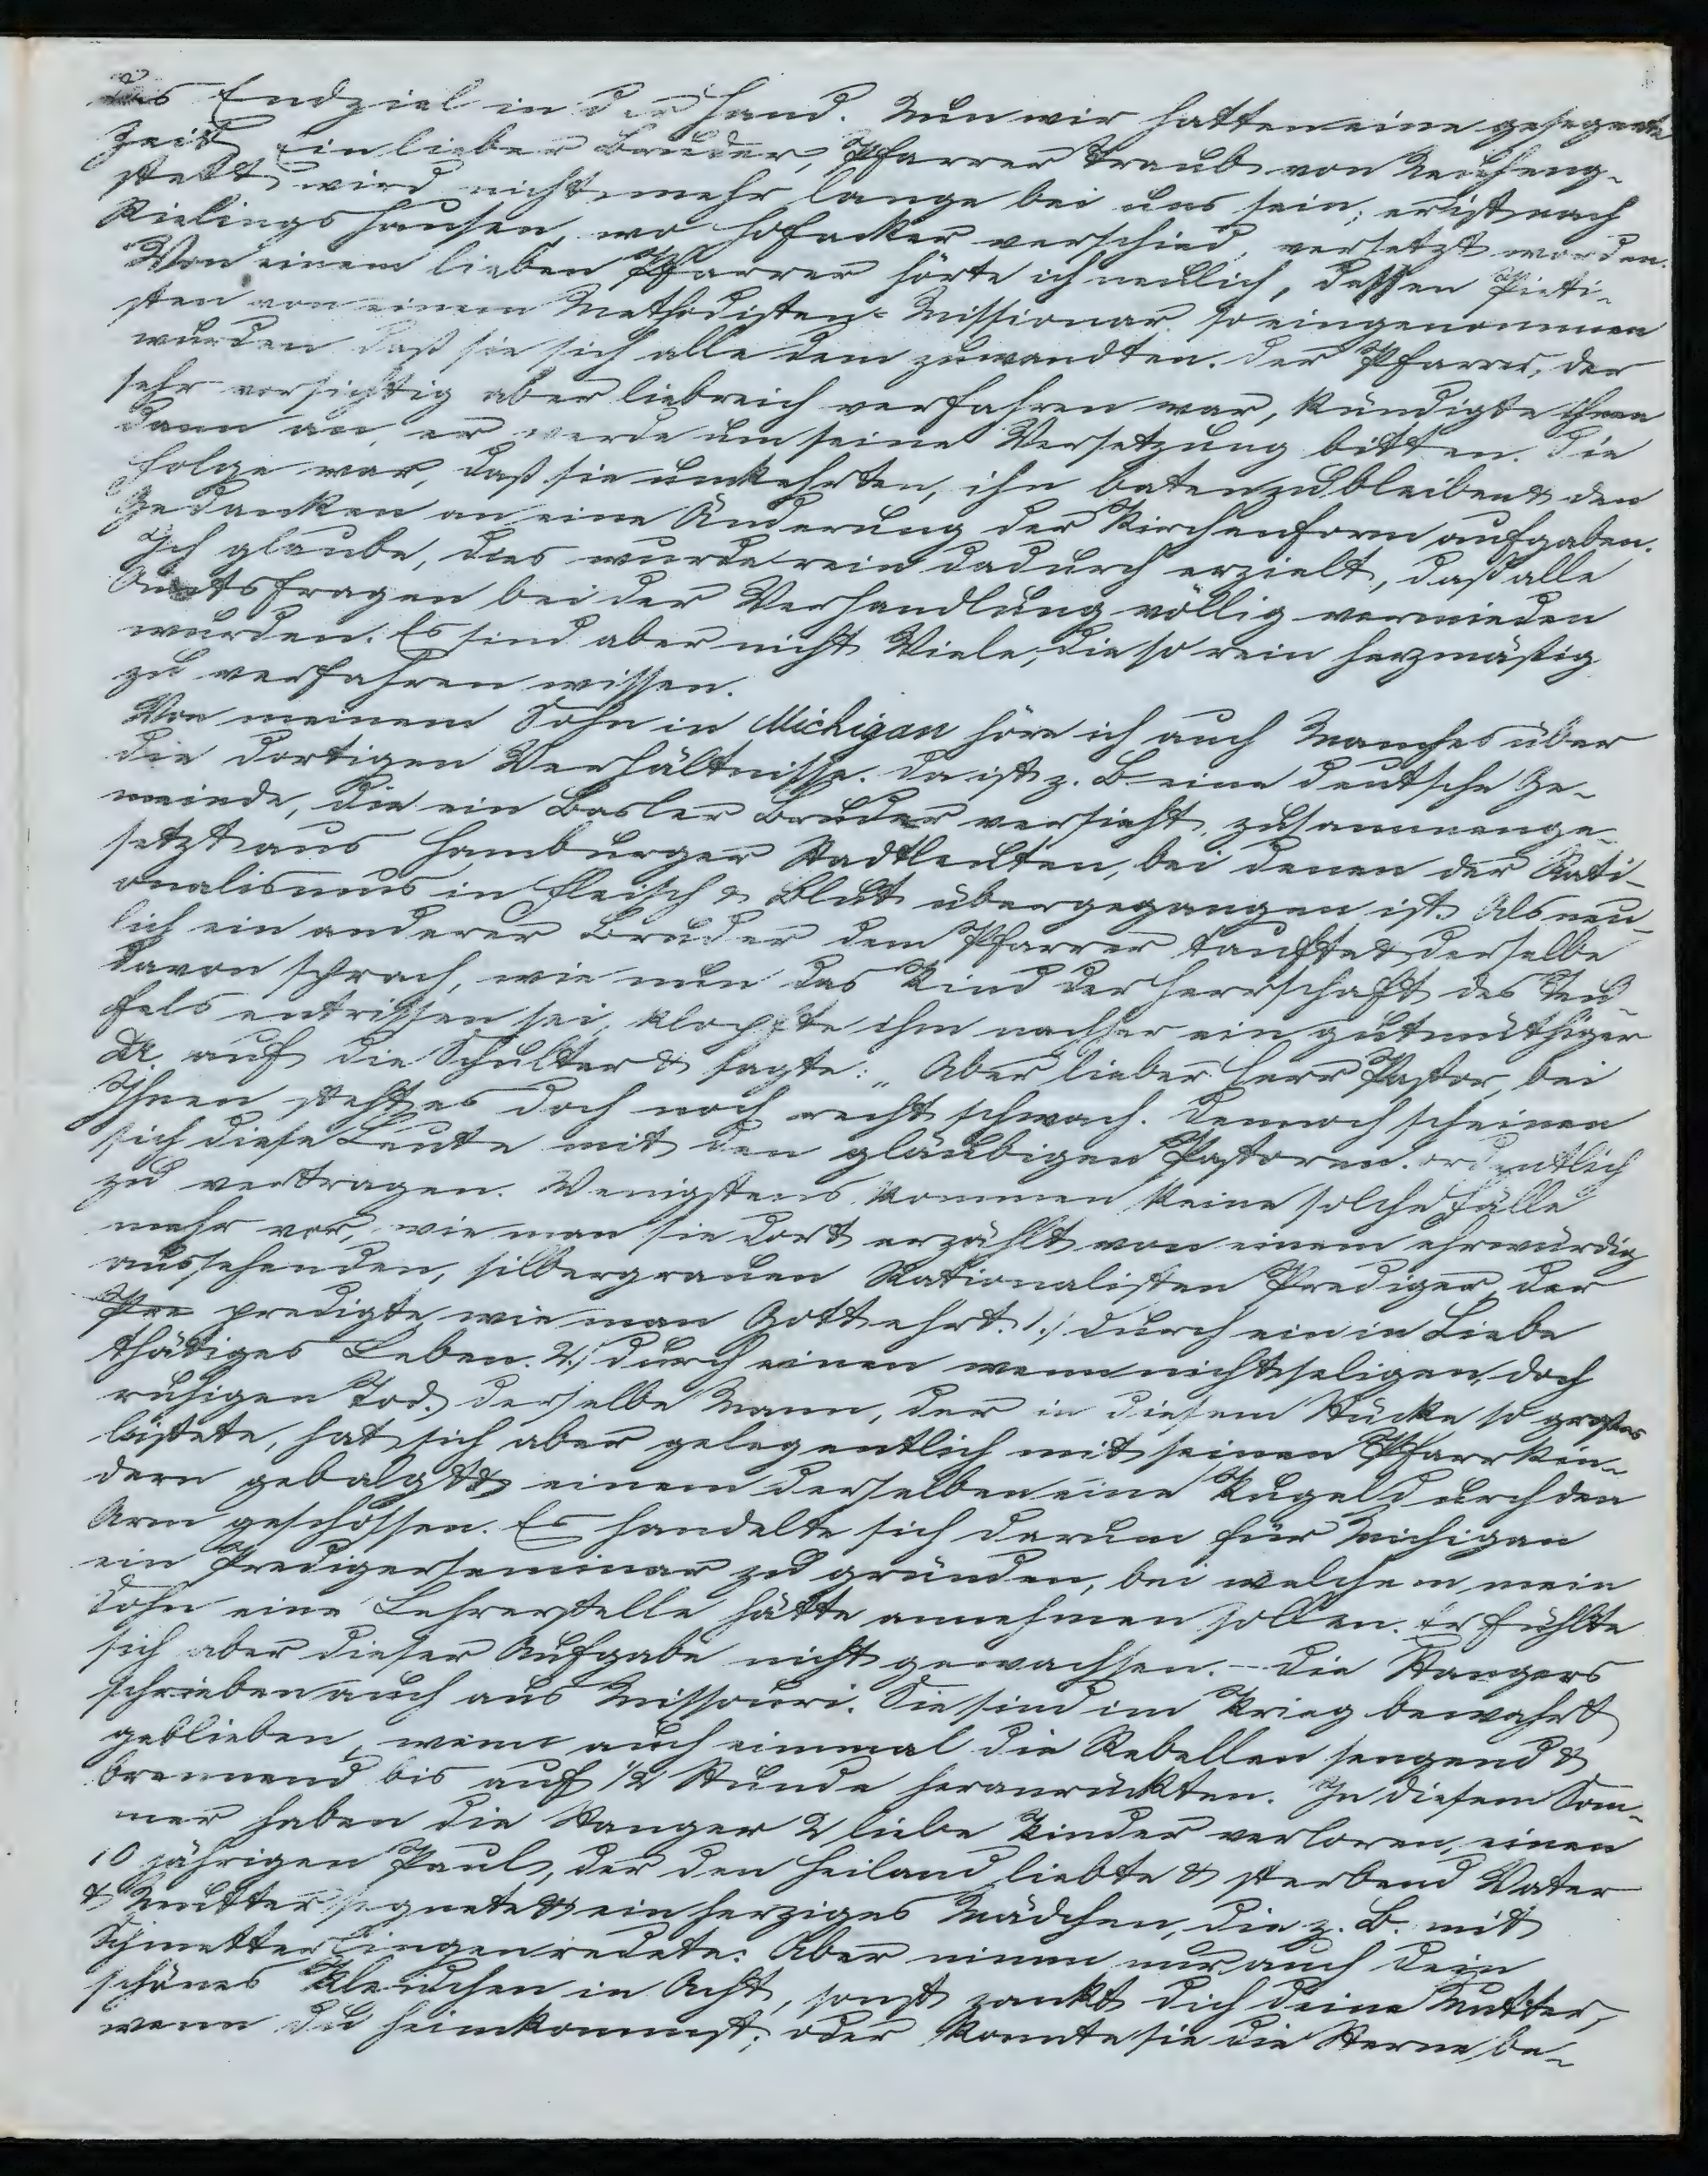 das Endziel in der Hand. Nun wir hatten eine gesegnete
Zeit. Ein lieber Bruder, Pfarrer Traub von
stett wird nicht mehr lange bei uns sein; er ist nach
Rielingshausen, wo Hofacker verschied, versetzt worden.
Von einem lieben Pfarrer hörte ich neulich, dessen Pieti-
sten von einem Methodisten-Missionar so eingenommen
wurden daß sie sich alle dem zuwandten. Der Pfarrer, der
sehr vorsichtig aber liebreich verfahren war, kündigte ihnen
dann an, er werde um seine Versetzung bitten. Die
Folge war, daß sie umkehrten, ihn baten zu bleiben & den
Gedanken an eine Änderung der Kirchenform aufgaben.
Ich glaube, dies wurde rein dadurch erzielt, daß alle
Amtsfragen bei der Verhandlung völlig vermieden
wurden. Es sind aber nicht Viele, die so rein herzmäßig
zu verfahren wissen.
Von meinem Sohn in Michigan höre ich auch Manches über
die dortigen Verhältnisse. Da ist z. B. eine deutsche Ge-
meinde, die ein Basler Bruder versieht, zusammenge-
setzt aus Hamburger Stadtleuten, bei denen der Rati-
onalismus in Fleisch & Blut übergegangen ist. Als neu-
lich ein anderer Bruder dem Pfarrer taufte & derselbe
davon sprach, wie nun das Kind der Herrschaft des Teu-
fels entrissen sei, klopfte ihm nachher ein gutmüthiger
Dr. auf die Schulter & sagte: „Aber lieber Herr Pastor, bei
Ihnen steht es doch noch recht schwach. Dennoch scheinen
sich diese Leute mit den gläubigen Pastoren ordentlich
zu vertragen. Wenigstens kommen keine solche Fälle
mehr vor, wie man sie dort erzählt von einem ehrwürdig
aussehenden, silbergrauen Rationalisten Prediger, der
Pre predigte, wie man Gott ehrt. 1.) durch ein in Liebe
thätiges Leben. 2.) durch einen wenn nicht seligen, doch
ruhigen Tod. Derselbe Mann, der in diesem Stücke so großes
leistete, hat sich aber gelegentlich mit seinen Pfarrkin-
dern gebalgt & einem derselben eine Kugel durch den
Arm geschossen. Es handelte sich darum für Michigan
ein Predigerseminar zu gründen, bei welchem mein
Sohn eine Lehrerstelle hätte annehmen sollen. Er fühlte
sich aber dieser Aufgabe nicht gewachsen. - Die Stangers
schrieben auch aus Missouri. Sie sind im Krieg bewahrt
geblieben, wenn auch einmal die Rebellen sengend &
brennend bis auf 1/2 Stunde heranrückten. In diesem Som-
mer haben die Stanger 2 liebe Kinder verloren, einen
10 jährigen Paul, der den Heiland liebte & sterbend Vater
& Mutter segnete & ein herziges Mädchen, die z. B. mit
Schmetterlingen redete: Aber nimm nur auch dein
schönes Kleidchen in Acht, sonst zankt dich deine Mutter,
wenn du heimkommst; oder konnte sie die Sterne be-